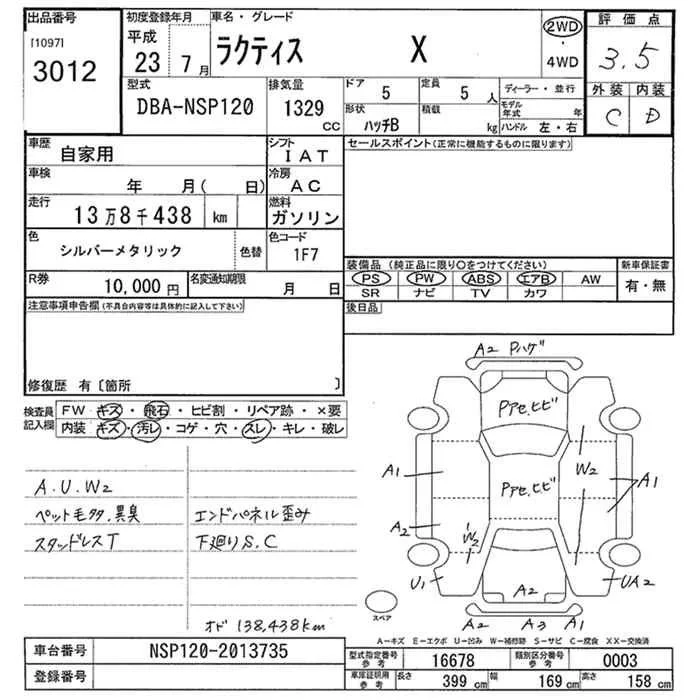 出品番号
[1097]
3012
初度登録年月
平成
23 7月
車名・グレード
ラクティス X
2WD
・
4WD
評価点
3.5
外装 内装
C D
型式
DBA-NSP120
排気量
1329
CC
ドア
5
定員
5 人
形状
ハッチB
積載
kg
ディーラー・並行
モデル年式 年
ハンドル 左・右
車歴
自家用
シフト
IAT
車検
年 月( 日)
冷房
AC
走行
13万8千438 km
燃料
ガソリン
色
シルバーメタリック
色替
色コード
1F7
R券
10,000 円
名変通知期限
月 日
セールスポイント(正常に機能するものに限ります)
装備品 (純正品に限り○をつけてください)
PS PW ABS エアB AW
SR ナビ TV カワ
新車保証書
有・無
後日品
注意事項申告欄(不具合内容等は具体的に記入して下さい)
修復歴 有〔箇所 〕
検査員
記入欄
FW キズ・飛石・ヒビ割・リペア跡・×要
内装 キズ・汚レ・コゲ・穴・スレ・キレ・破レ
A.U.W2
ペット毛多、異臭
スタッドレスT
エンドパネル歪み
下廻りS.C
オド 138,438km
A2 Pハゲ
Pアセ、ヒビ
W2
Pアセ、ヒビ
A1
A1
A2
W2
U1
A2
UA2
A2 A3 A1
スペア
A―キズ E―エクボ U―凹み W―補修跡 S―サビ C―腐食 XX―交換済
車台番号
NSP120-2013735
登録番号
型式指定番号
参考
16678
類別区分番号
参考
0003
車庫証明用
参考
長さ
399 cm
幅
169 cm
高さ
158 cm